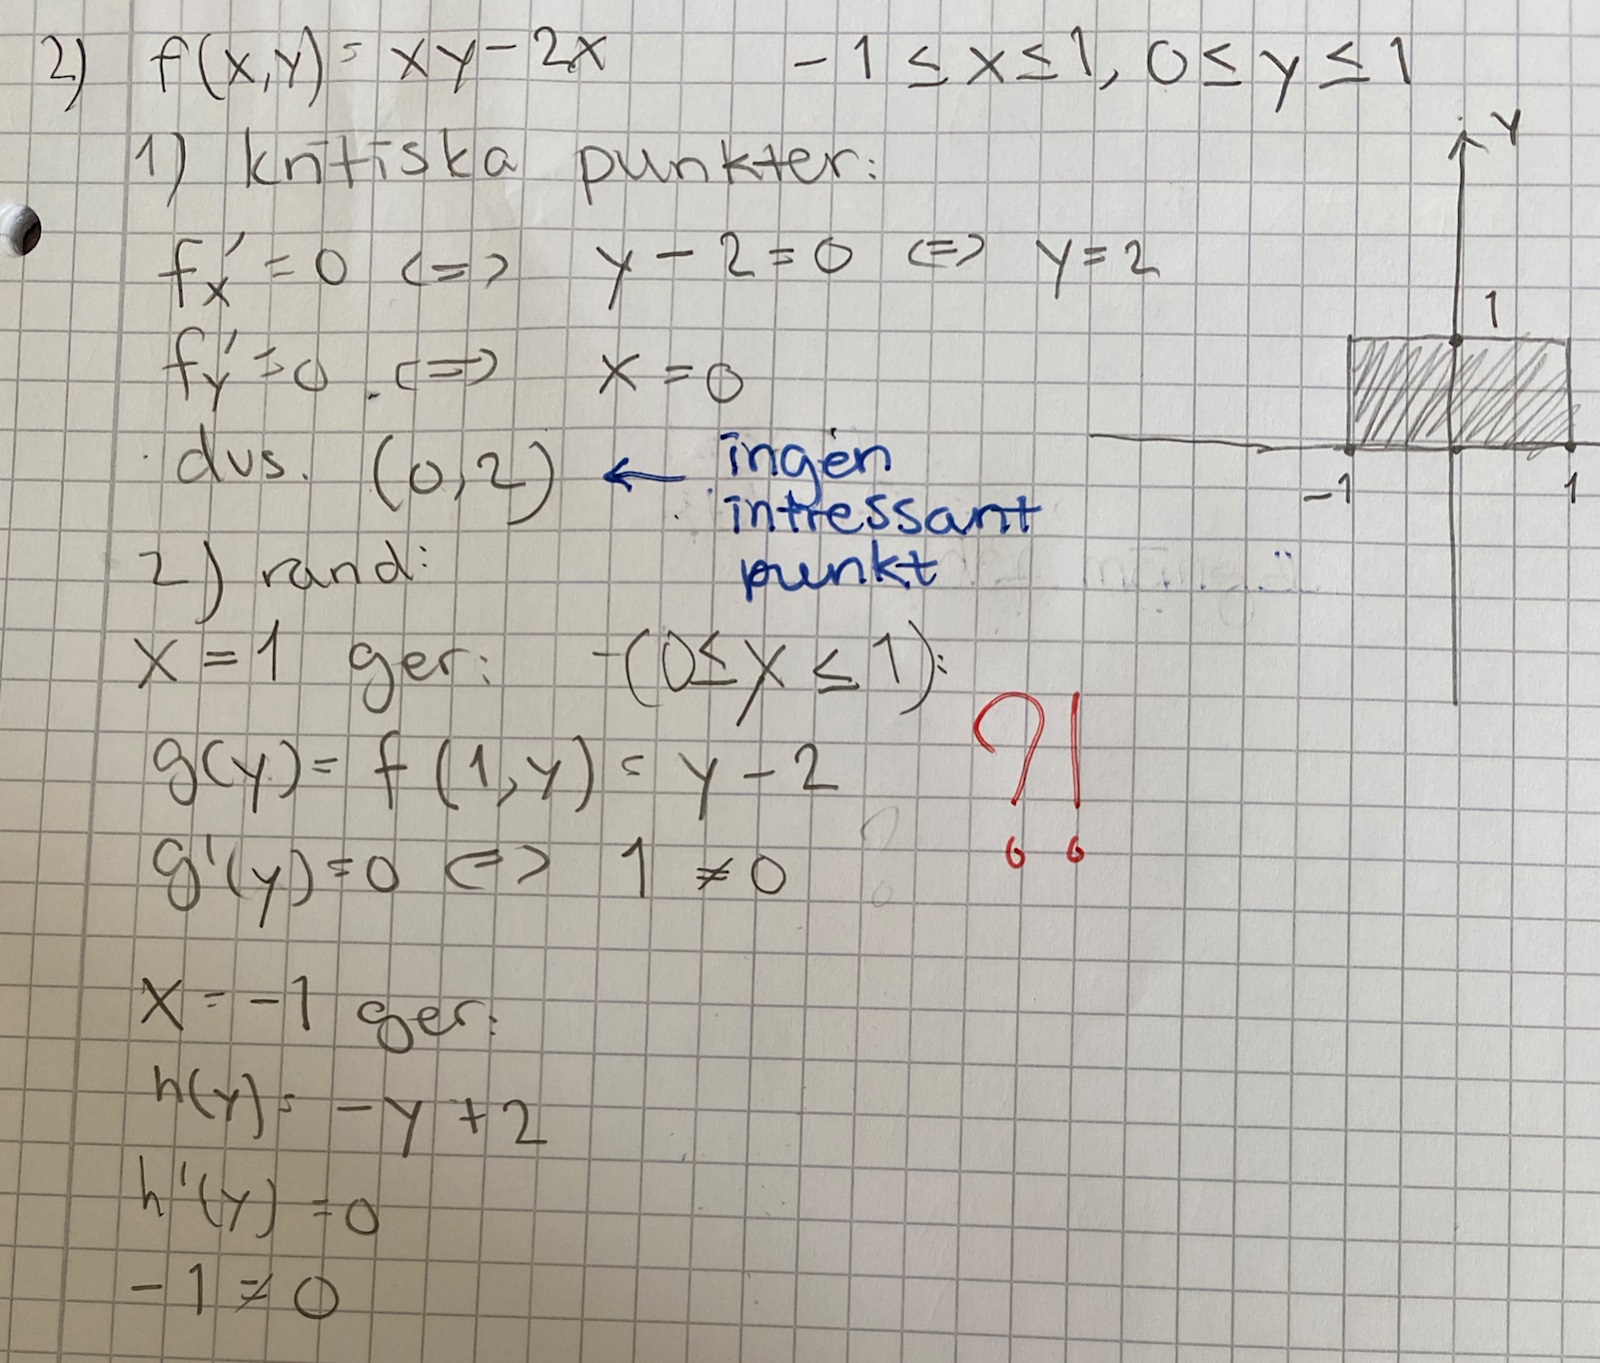 2) f(x,y) = xy - 2x    -1 ≤ x ≤ 1, 0 ≤ y ≤ 1
y
1) kritiska punkter:
f'x = 0 <=> y - 2 = 0 <=> y = 2
1
f'y = 0 <=> x = 0
dvs. (0,2) ← ingen
intressant
punkt
-1 1
2) rand:
x = 1 ger: (0 ≤ y ≤ 1):
?!
g(y) = f(1,y) = y - 2
g'(y) = 0 <=> 1 ≠ 0
x = -1 ger:
h(y) = -y + 2
h'(y) = 0
-1 ≠ 0